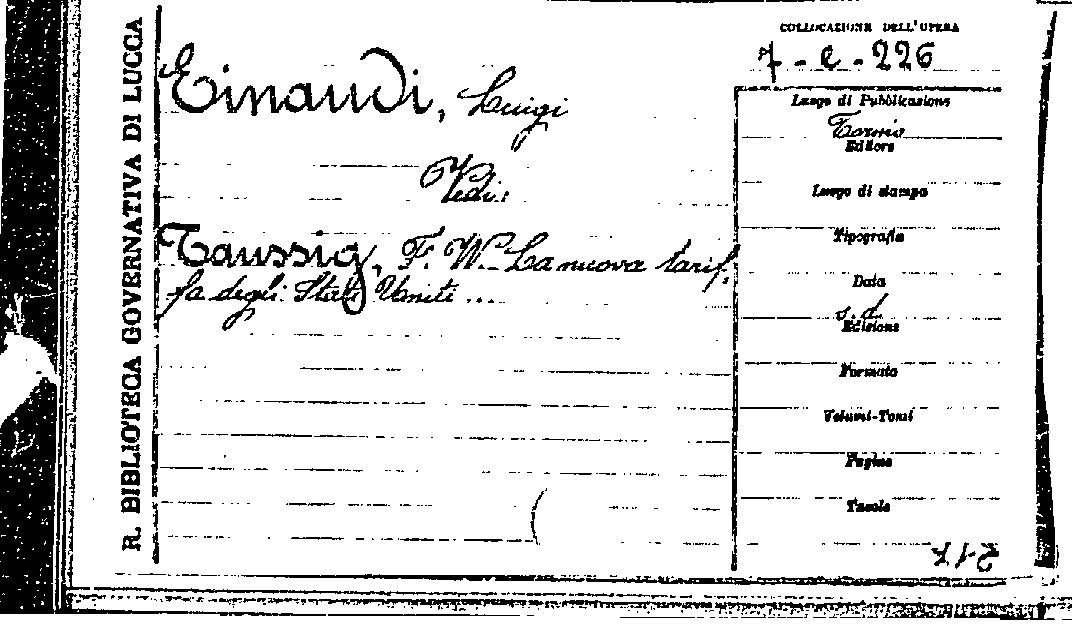 R. BIBLIOTECA GOVERNATIVA DI LUCCA
COLLOCAZIONE DELL'OPERA
7 - e - 226
Einaudi, Luigi
Vedi:
Taussig, F. W. La nuova tarif,
fa degli Stati Uniti ...
Luogo di Pubblicazione
Torino
Editore
Luogo di stampa
Tipografia
Data
s. d.
Edizione
Formato
Volumi-Tomi
Pagine
Tavole